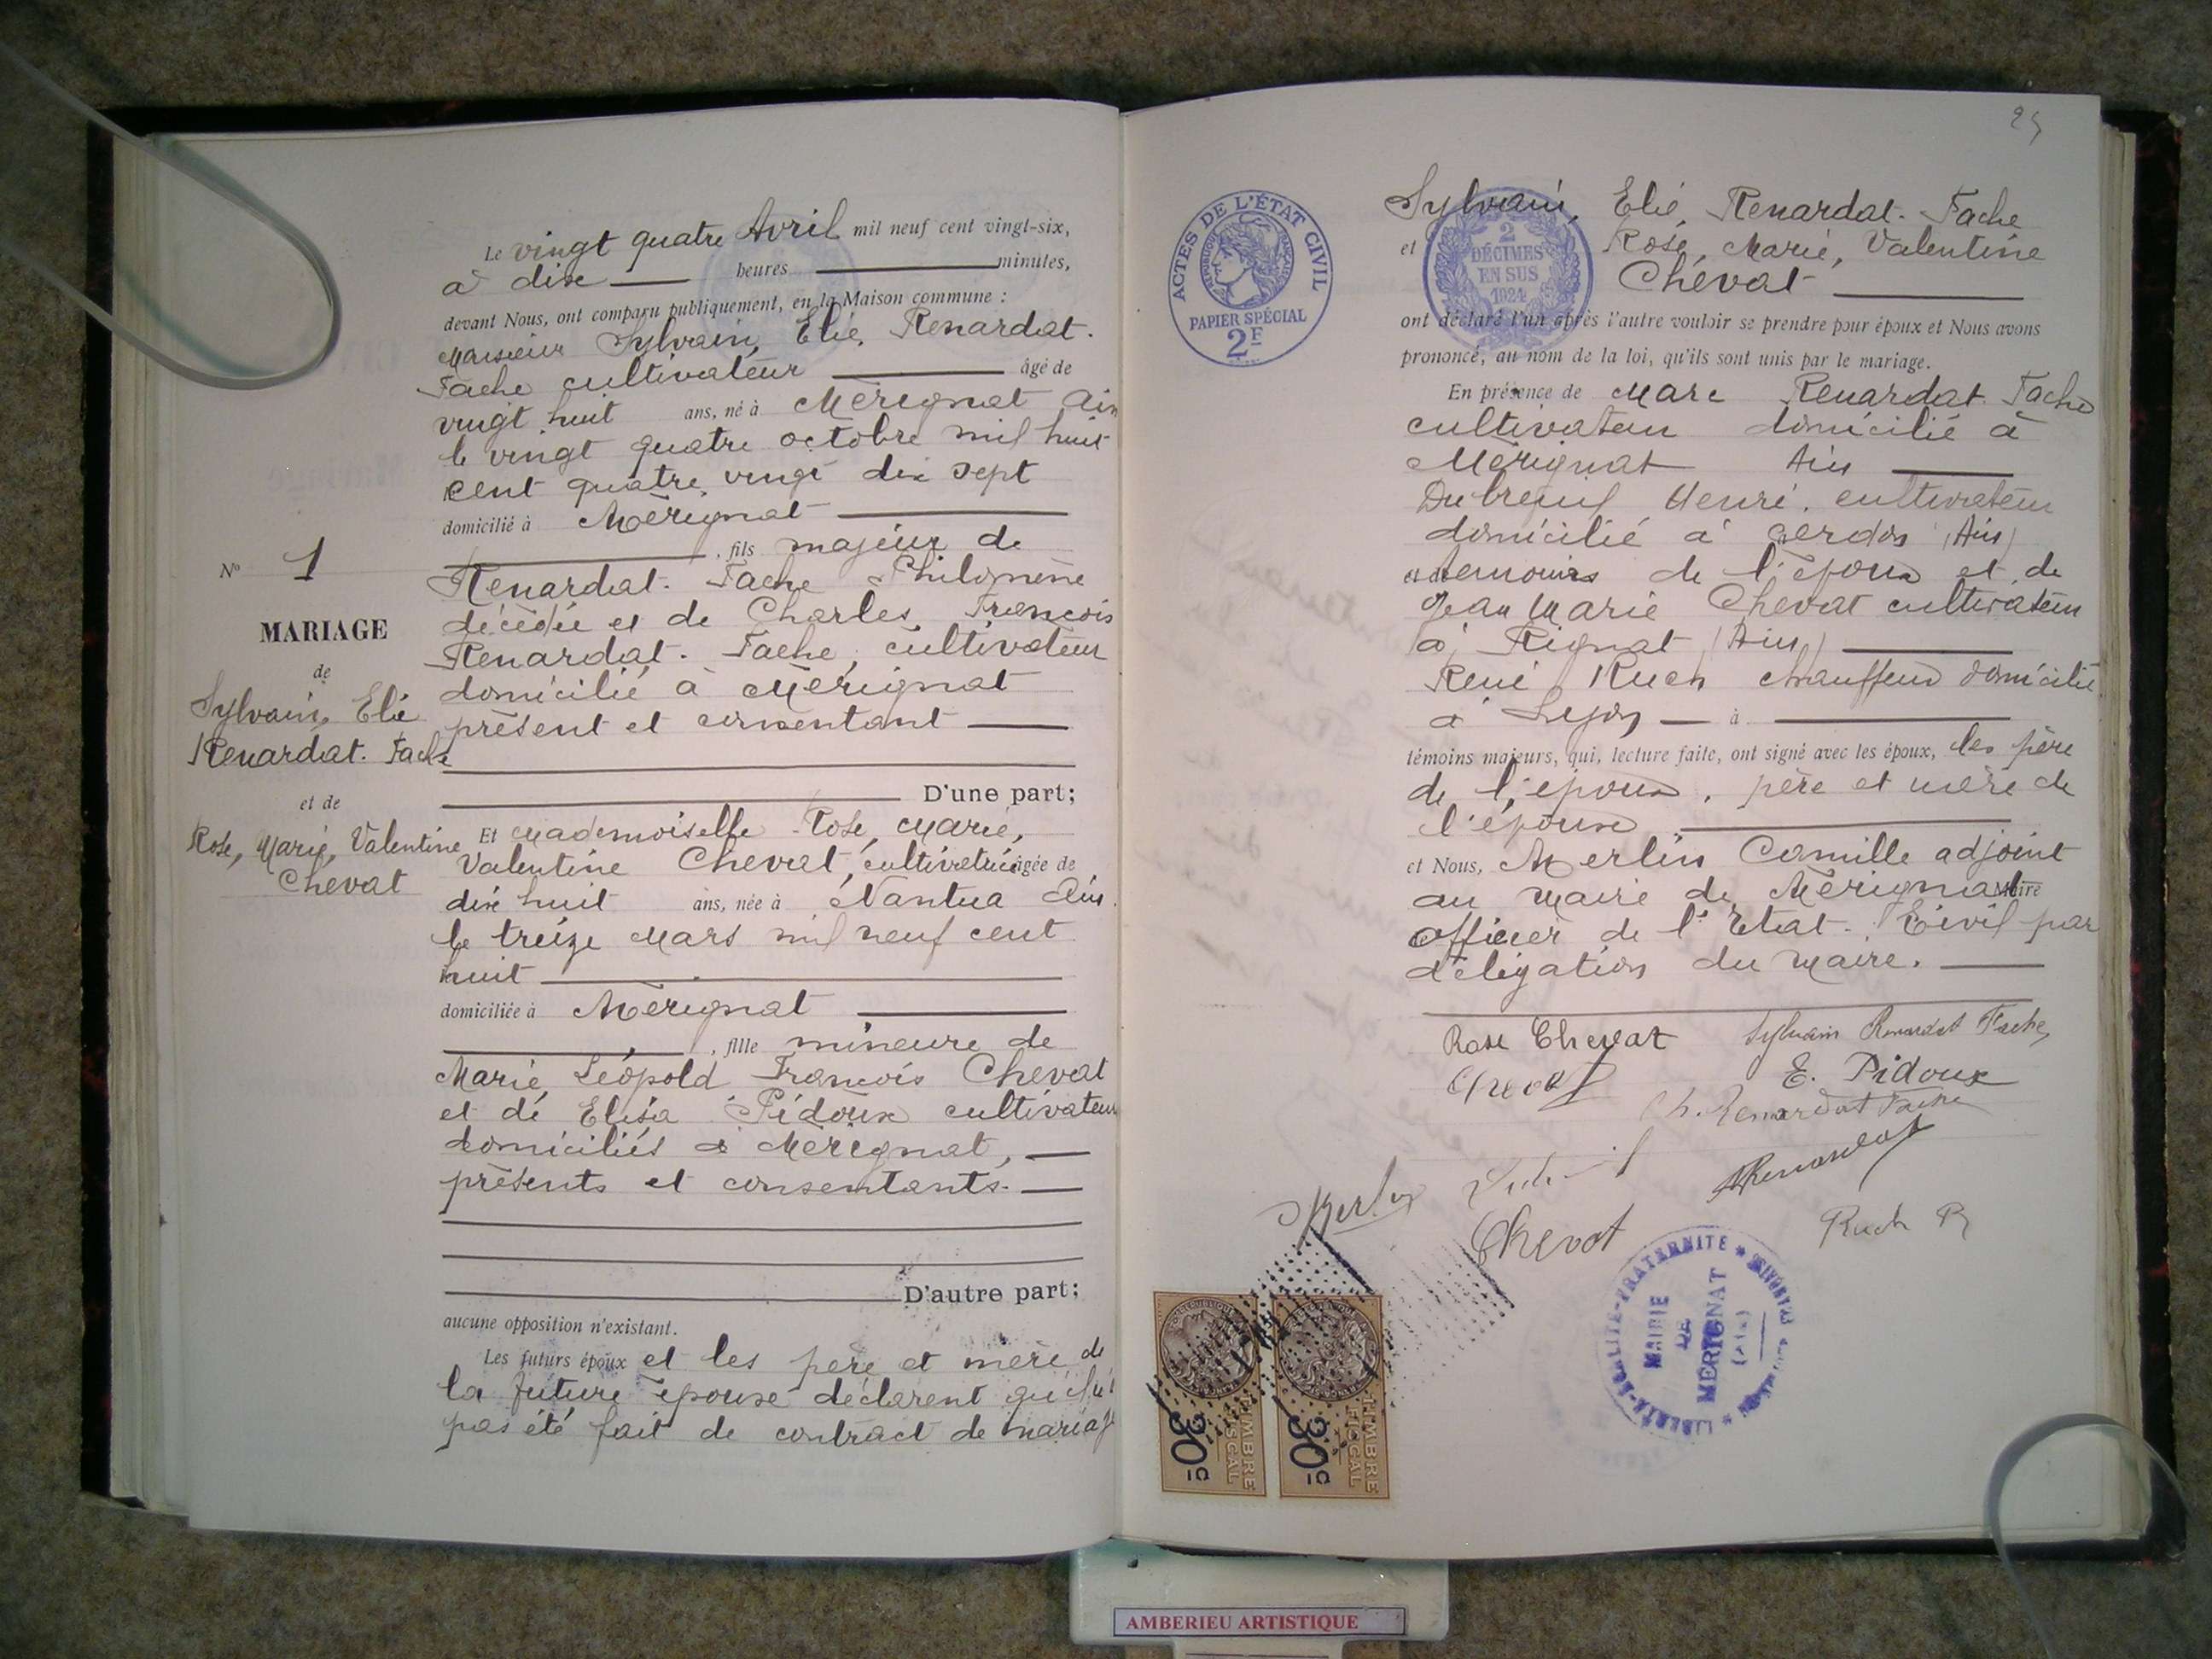 Le vingt quatre Avril mil neuf cent vingt-six,
à dix heures minutes,
devant Nous, ont comparu publiquement, en la Maison commune :
Monsieur Sylvain, Elie, Renardat.
Fache cultivateur âgé de
vingt huit ans, né à Mérignat Ain
le vingt quatre octobre mil huit
cent quatre vingt dix sept
domicilié à Mérignat
, fils majeur de
Renardat. Fache Philomène
décédée et de Charles, François
Renardat. Fache, cultivateur
domicilié à Mérignat
présent et consentant
D'une part;
N° 1
MARIAGE
de
Sylvain, Elie
Renardat. Fache
et de
Rose, Marie, Valentine
Chevat
Et Mademoiselle Rose, Marie,
Valentine Chevat, cultivatrice âgée de
dix huit ans, née à Nantua Ain.
le treize Mars mil neuf cent
huit
domiciliée à Mérignat
, fille mineure de
Marie, Léopold François Chevat
et de Elisa Pidoux cultivateurs
domiciliés à Mérignat,
présents et consentants.
D'autre part;
aucune opposition n'existant.
Les futurs époux et les père et mère de
la future épouse déclarent qu'il n'a
pas été fait de contract de mariage
25
ACTES DE L'ÉTAT CIVIL
RÉPUBLIQUE FRANÇAISE
PAPIER SPÉCIAL
2F
2
DÉCIMES
EN SUS
1924
Sylvain, Elie, Renardat. Fache
et Rose, Marie, Valentine
Chevat
ont déclaré l'un après l'autre vouloir se prendre pour époux et Nous avons
prononcé, au nom de la loi, qu'ils sont unis par le mariage.
En présence de Marc Renardat. Fache
cultivateur domicilié à
Mérignat Ain
Dubreuil Henri. cultivateur
domicilié à Cerdon (Ain)
et de témoins de l'époux et de
Jean Marie Chevat cultivateur
à Rignat (Ain)
René Ruch chauffeur domicilié
à Lyon à
témoins majeurs, qui, lecture faite, ont signé avec les époux, les père
de l'époux, père et mère de
l'épouse
et Nous, Merlin Camille adjoint
au Maire de Mérignat Maire
Officier de l'Etat. Civil par
délégation du Maire.
Rose Chevat Sylvain Renardat Fache
Chevat E. Pidoux
Ch. Renardat Fache
Renardat
Merlin Chevat Ruch R
LIBERTÉ-ÉGALITÉ-FRATERNITÉ
MAIRIE
DE
MERIGNAT
(AIN)
30c
TIMBRE
FISCAL
30c
TIMBRE
FISCAL
AMBERIEU ARTISTIQUE